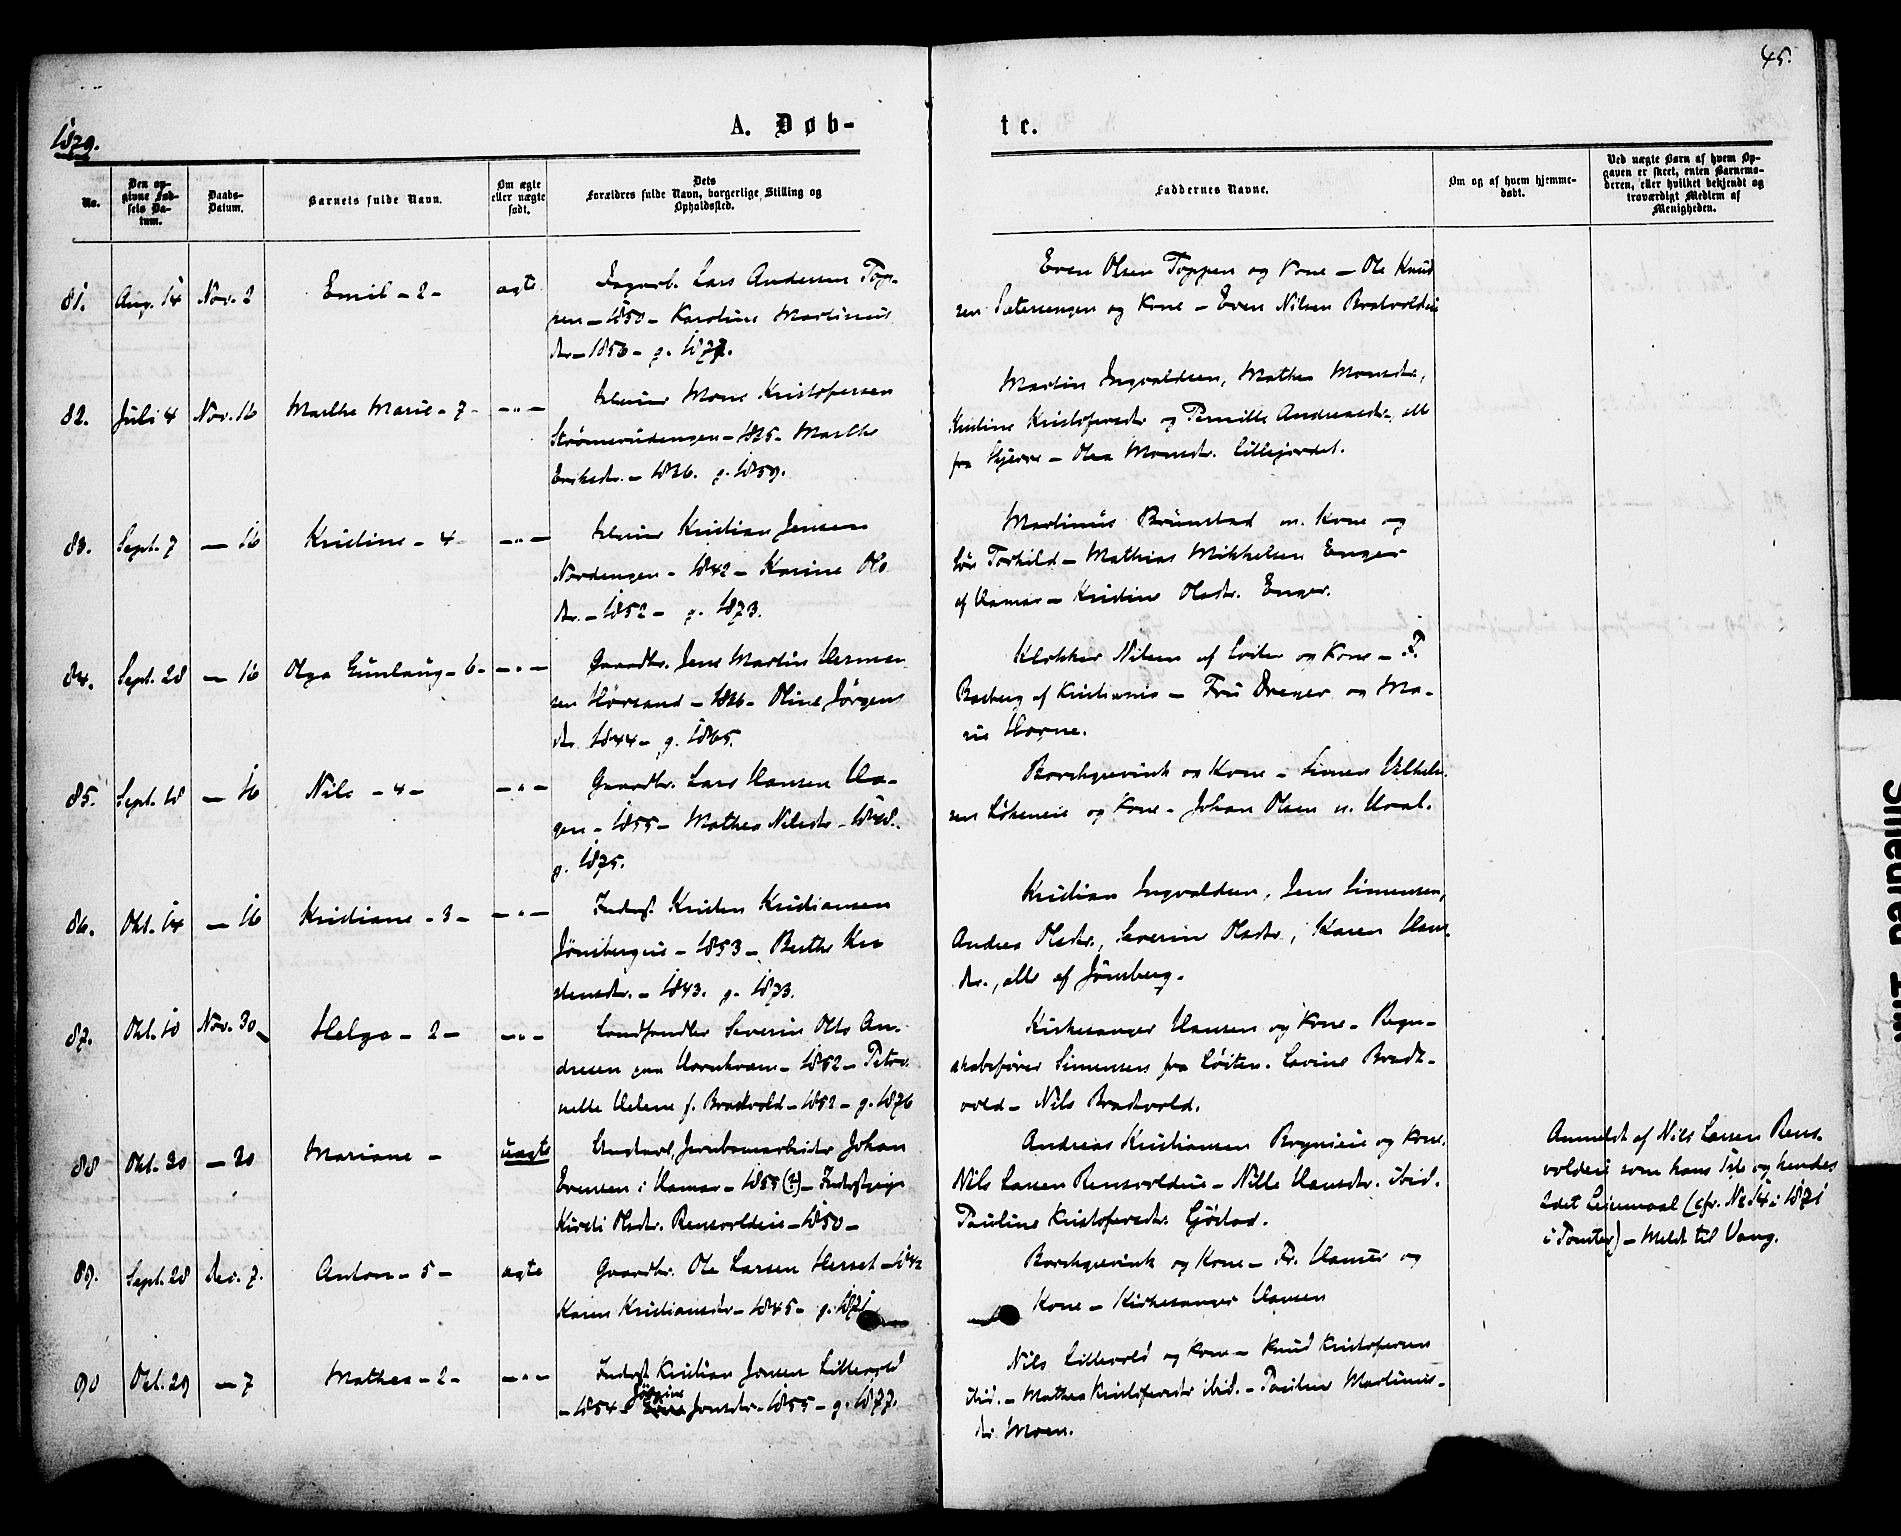 45.
1879.
A. Døb-
te.
No.
Den op-
givne Fød-
sels Da-
tum.
Daabs-
Datum.
Barnets fulde Navn.
Om ægte
eller uægte
født.
Dets
Forældres fulde Navn, borgerlige Stilling og
Opholdssted.
Faddernes Navne.
Om og af hvem hjemme-
døbt.
Ved uægte Barn af hvem Op-
gaven er skeet, enten Barnemo-
deren, eller hvilket bekjendt og
troværdigt Medlem af
Menigheden.
81. Aug. 14 Nov. 2 Emil - 2 - ægte
Lars Andersen Top-
pen - 1850 - Karoline Martinus
dr. - 1856 - g. 1877.
Even Olsen Toppen og Kone - Ole Knud
sen Sæterengen og Kone - Even Nilsen
82. Juli 4 Nov. 16 Marthe Marie - 7 - - " -
Mons Kristofersen
Strømerudengen - 1825 - Marthe
- 1836. g. 1859.
Martin Ingvaldsen, Mathea Monsdr.,
Kristine Kristofersdr. og Pernille Andreasdr., alle
fra - Olea Monsdr. Lillejordet.
83. Sept. 7 - 16 Kristine - 4 - " -
Kristian Jensen
Nordengen - 1842 - Karine Ols
dr. - 1852 - g. 1873.
Martinus Brunstad m. Kone og
Torkild - Mathias Mikkelsen Enger
af Hamar - Kristine Olsdr. Enger.
84. Sept. 28 - 16 Olga Gunlaug - 6 - - " -
Gaardbr. Jens Martin Herman
sen - 1836 - Oline Jørgens
dr. 1844 - g. 1865.
Klokker Nilsen af Løiten og Kone - F.
af Kristiania - Fru Dreyer og Ma-
rie Horne.
85. Sept. 18 - 16 Nils - 4 - - " -
Gaardbr. Lars Hansen Ha-
gen - 1855 - Mathea Nilsdr. - 1848.
g. 1875.
Borchgrevink og Kone - Simen Vilhelm
sen og Kone - Johan Olsen n.
86. Okt. 14 - 16 Kristiane - 3 - - " -
Inderst Kristen Kristiansen
Jønsbergeie - 1853 - Berthe Kri
stensdr. - 1843. g. 1873.
Kristian Ingvaldsen, Jens Simensen,
Andrea Olsdr., Severine Olsdr., Karen Hans
dr., alle af Jønsberg.
87. Okt. 10 Nov. 30 Helga - 2 - - " -
Landhandler Severin Olts An-
dresen paa Hornkvam - 1852 - Petro
nelle Helene f. Bradvold - 1852 - g. 1876
Kirkesanger Hansen og Kone - Regn-
skabsfører Simensen fra Løiten. Lovise Brad-
vold - Nils Bradvold.
88 Okt. 20 - 30 Mariane - uægte
Ungkarl, Jernbanearbeider Johan
Evensen i Hamar - 1855 (?) - Inderstpige
Kirsti Olsdr. Rensvoldeie - 1850 -
Andreas Kristiansen Brynieie og Kone.
Nils Larsen Rensvoldeie - Nille Hansdr. ibid.
Pauline Kristofersdr. Gjøstad.
Anmeldt af Nils Larsen Rens-
voldeie som hans 1ste og hendes
2det Leiermaal (cfr. No 14 i 1871
i Tomter) - Meldt til Vang.
89. Sept. 28 Dec. 7. Anton - 5 - ægte
Gaardbr. Ole Larsen - 1842
Karen Kristiansdr. - 1845 - g. 1871
Borchgrevink og Kone - Fr. Hansen og
Kone - Kirkesanger Hansen
90 Okt. 29 - 7 Mathea - 2 - - " -
Inderst Kristian Jonsen Lillevold
- 1854 - Jørgine Jensdr. - 1855 - g. 1877.
Nils Lillevold og Kone - Knud Kristofersen
ibid. - Mathea Kristofersdr. ibid. - Pauline Martinus-
dr. Moen.